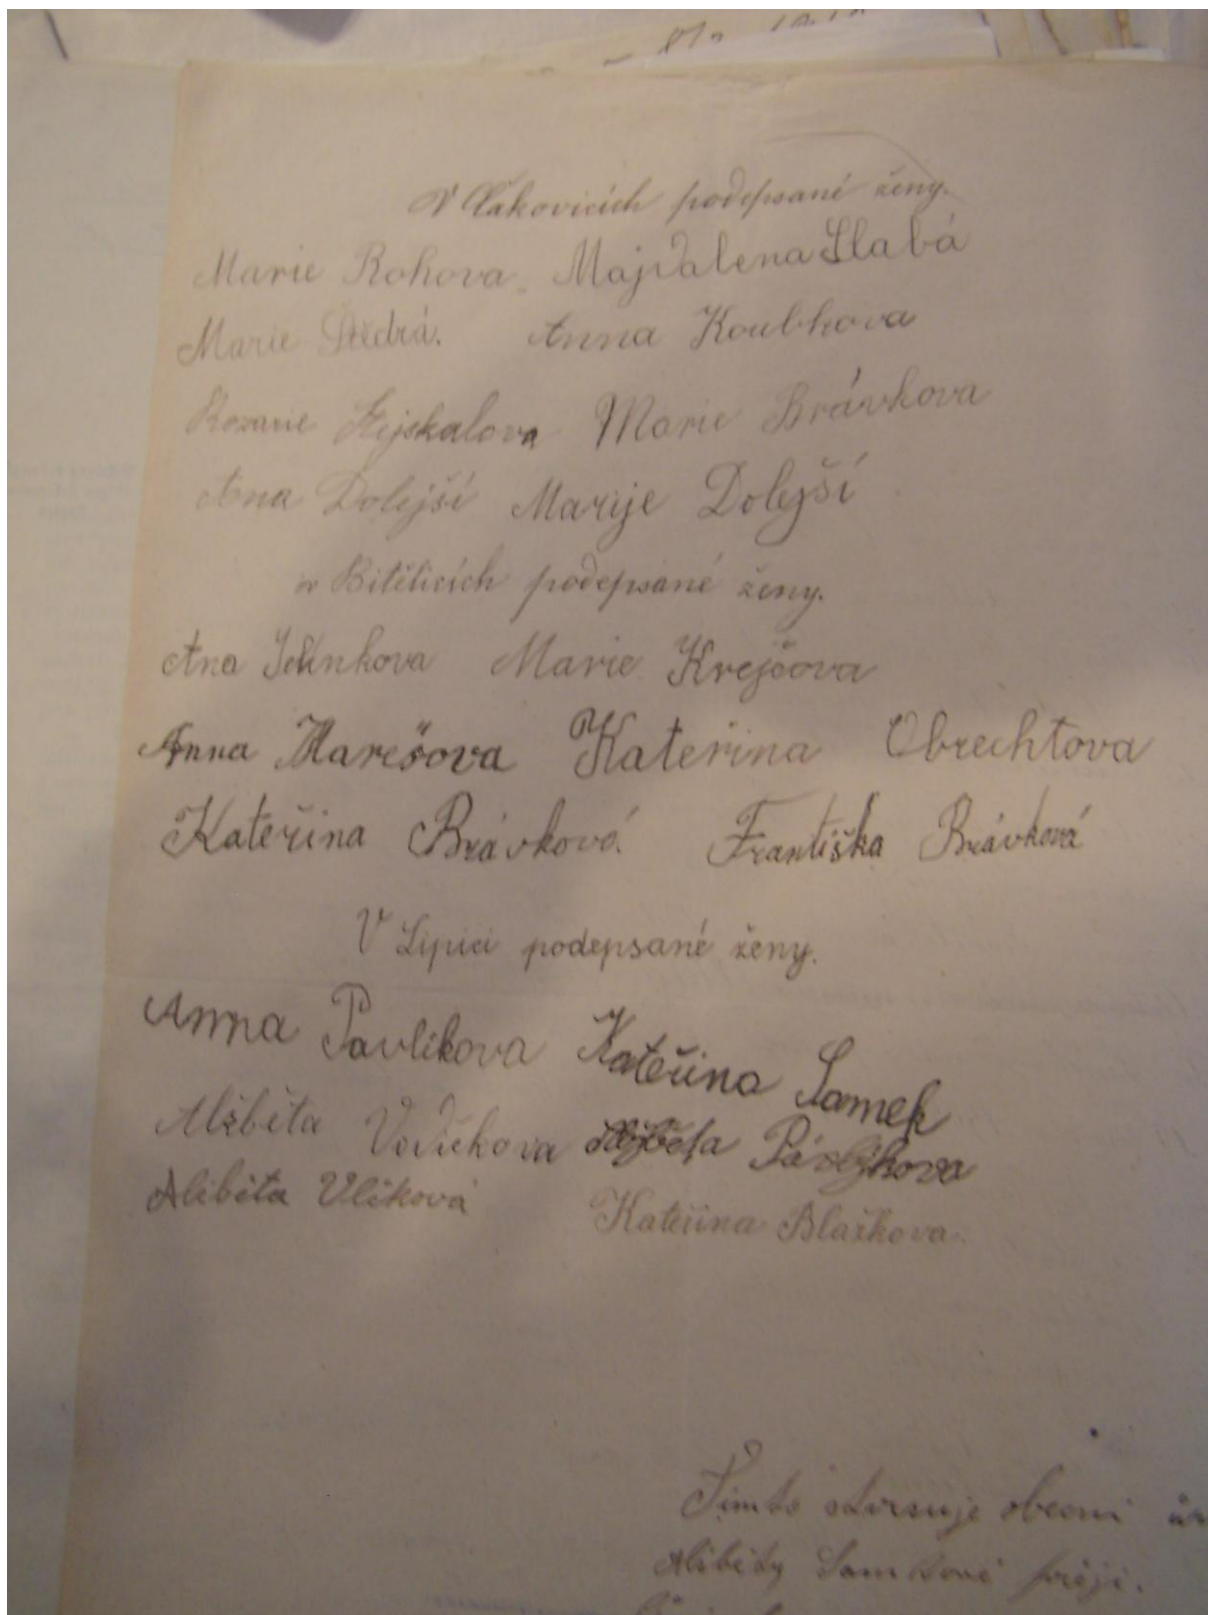 V Čakovicích podepsané ženy.
Marie Rohova. Majdalena Slabá
Marie Štědrá. Anna Koubkova
Rozarie Nejskalova Marie Brávkova
Ana Dolejší Marije Dolejší
v Bitělicích podepsané ženy.
Ana Jelinkova Marie Krejčova
Anna Marešova Kateřina Obrechtova
Kateřina Brávková Františka Brávková
V Lipici podepsané ženy.
Anna Pavlikova Kateřina Samek
Alžběta Vodičkova Pávlíjkova
Alžběta Vlčková Kateřina Blažkova.
Tímto stvrzuje obecní
Alžběty Samkové